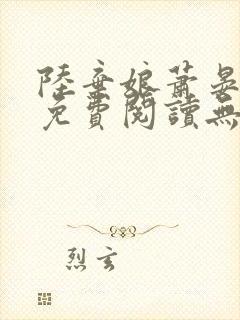 陸棄娘蕭晏
免費閱讀無
烈玄